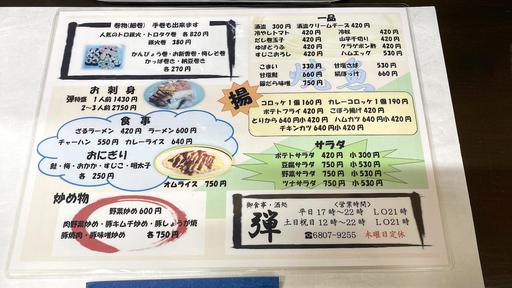 巻物(細巻) 手巻も出来ます
人気のトロ鉄火・トロタク巻 各820円
鉄火巻 380円
かんぴょう巻・お新香巻・梅しそ巻
かっぱ巻き・納豆巻き
各270円
お刺身
弾特盛 1人前1430円
2〜3人前2750円
食事
ざるラーメン 420円 ラーメン600円
チャーハン 550円 カレーライス 640円
おにぎり
鮭・梅・おかか・すじこ・明太子
各 250円
オムライス 750円
炒め物
野菜炒め600円
肉野菜炒め・豚キムチ炒め・豚しょうが焼
豚焼肉・豚味噌炒め 各750円
一品
300円 クリームチーズ 420円
冷やしトマト 420円
だし巻玉子 420円 山芋千切り 420円
ゆばとうふ 420円 クラゲポン酢 420円
すじこおろし 420円 ハムエッグ 530円
こまい 330円 甘塩さば 530円
甘塩鮭 660円 縞ほっけ 660円
銀だら味噌 750円
揚
コロッケ1個160円 カレーコロッケ1個190円
ポテトフライ 420円 ごぼう揚げ 420円
とりから640円小420円 ハムカツ 640円小420円
チキンカツ 640円小420円
サラダ
ポテトサラダ 420円 小 300円
豆腐サラダ 750円 小 530円
野菜サラダ 750円 小 530円
ツナサラダ 750円 小 530円
御食事・酒処
弾
<営業時間>
平日17時〜22時 LO21時
土日祝日12時〜22時 LO21時
☎6807-9255 木曜日定休